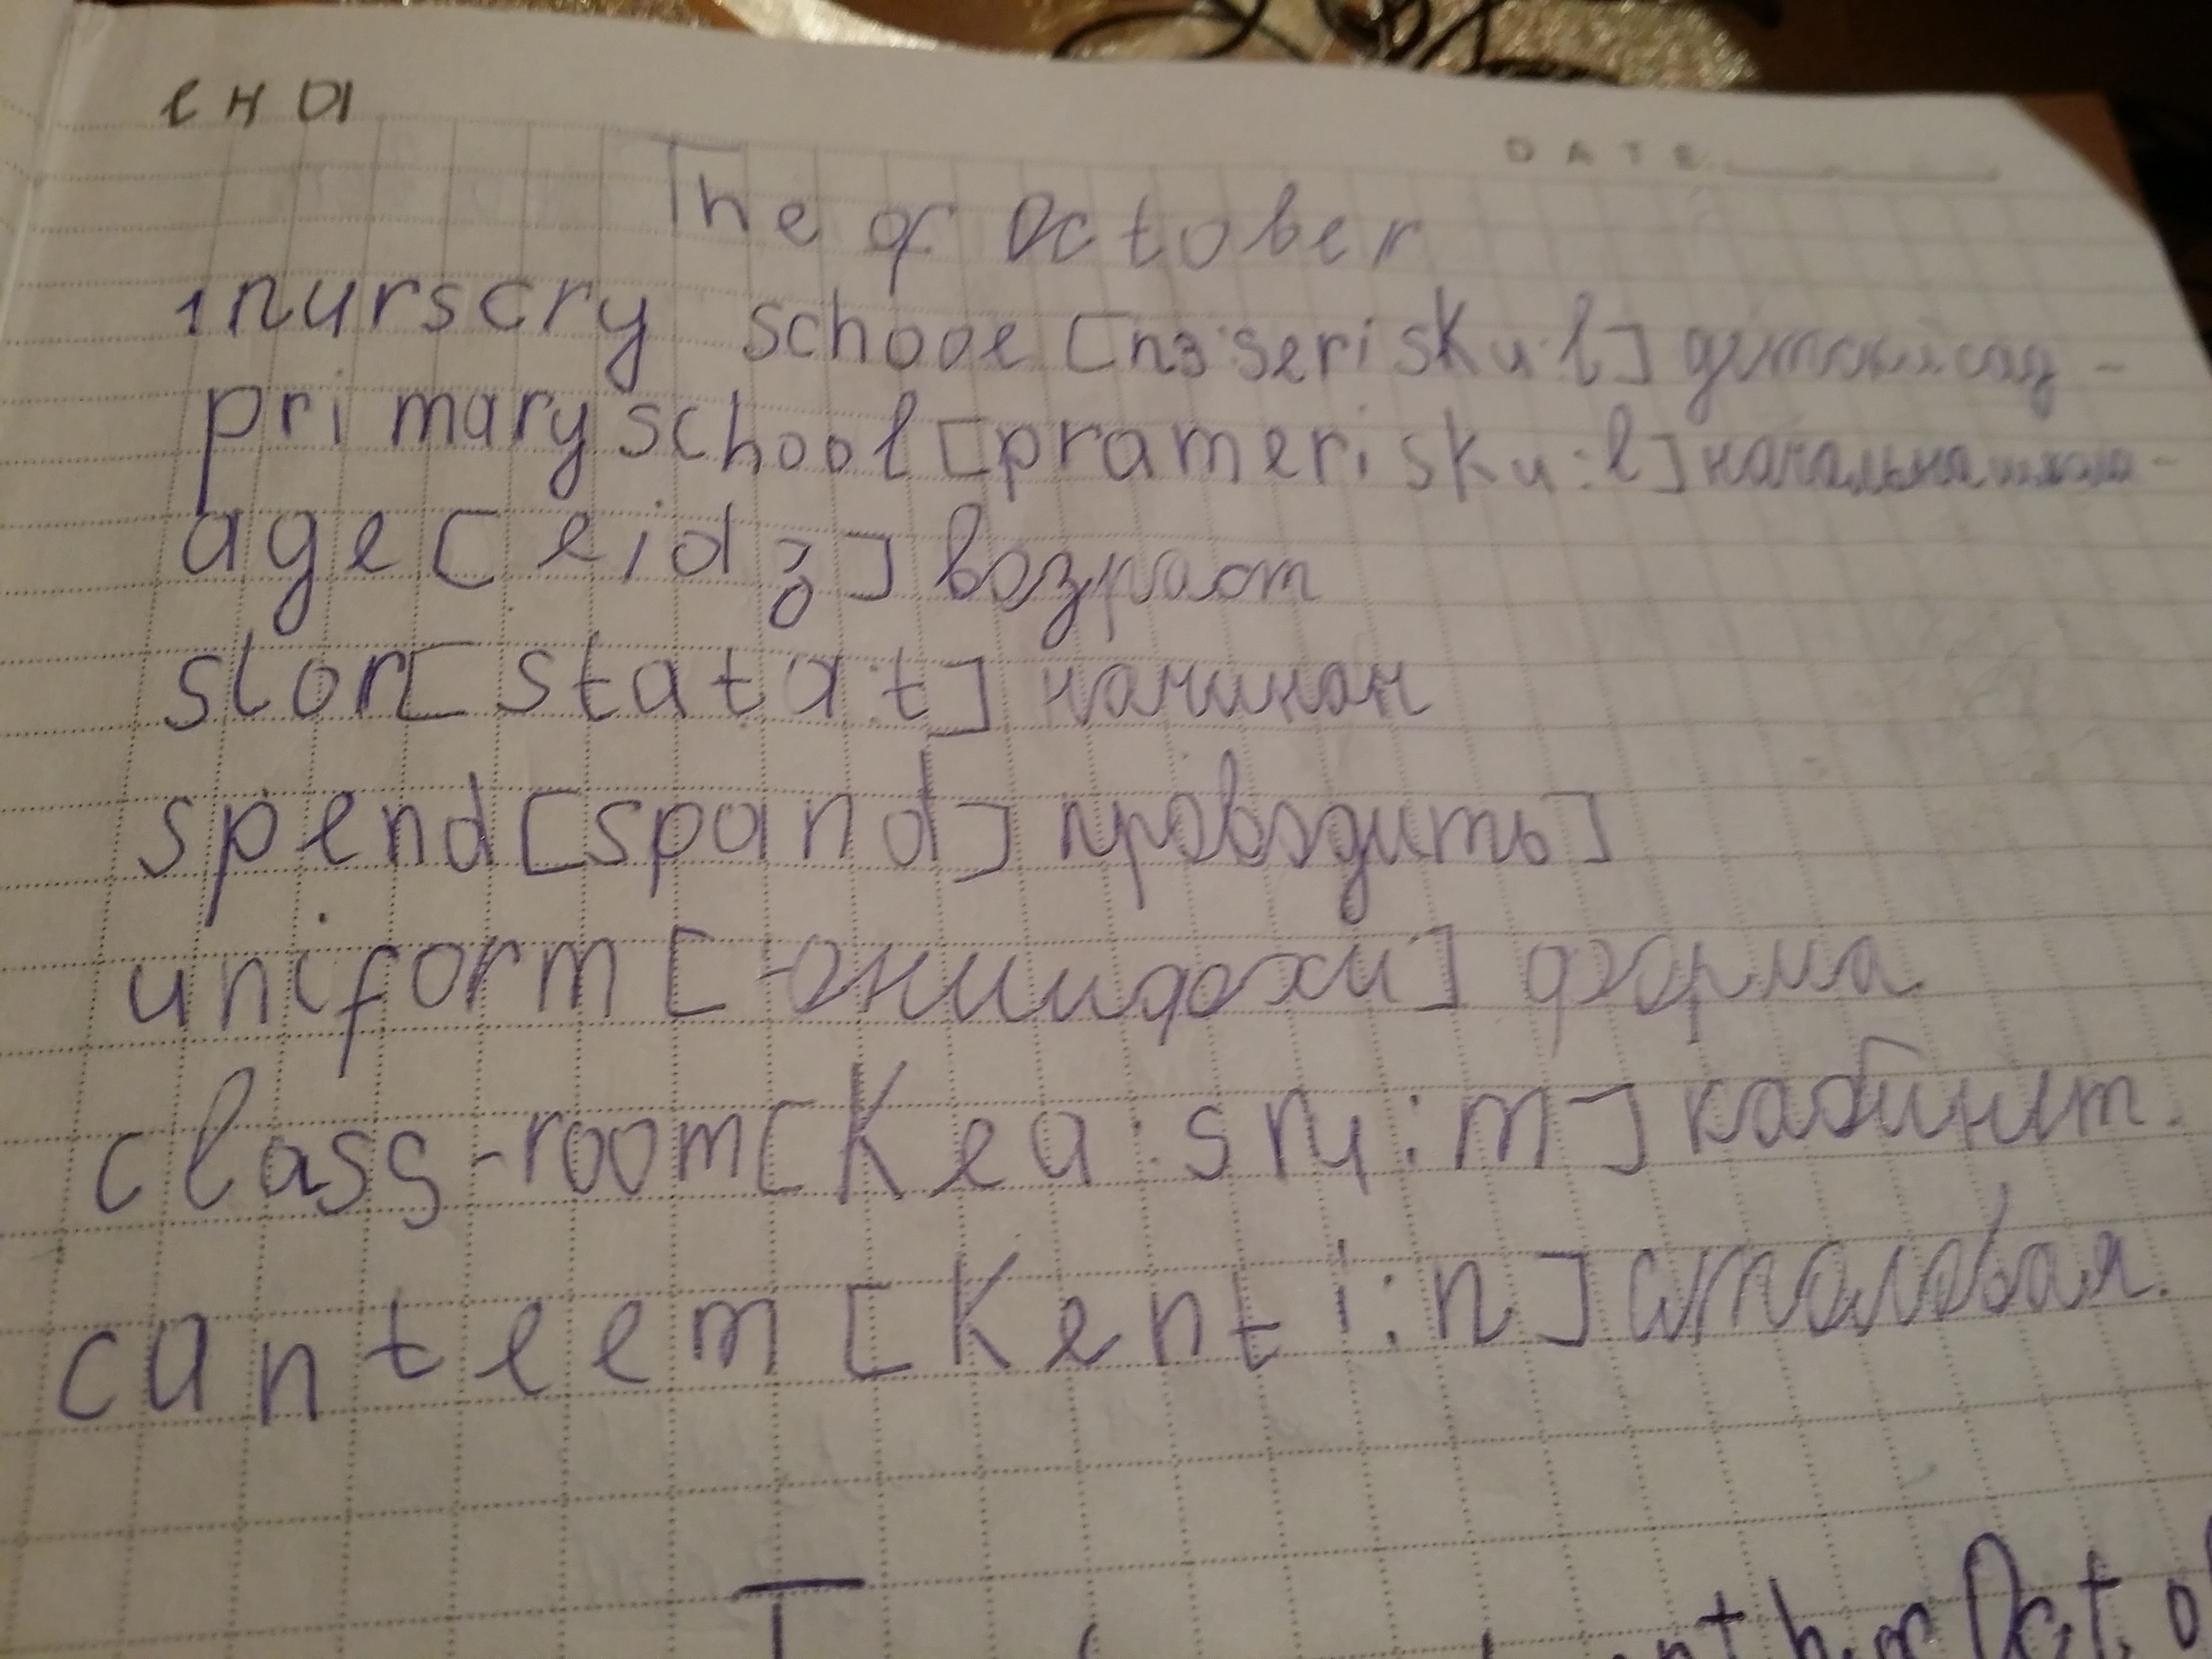 DATE
The of October
1 nurscry schooe [nз:seri sku:l] детский сад -
primary school [prameri sku:l] начальна школа -
age [eidʒ] возраст
slor [stata:t] начинан
spend [spand] проводить]
uniform [ ] форма
class-room [Kea:sru:m] кабинет.
canteem [Kenti:n] сталовая.